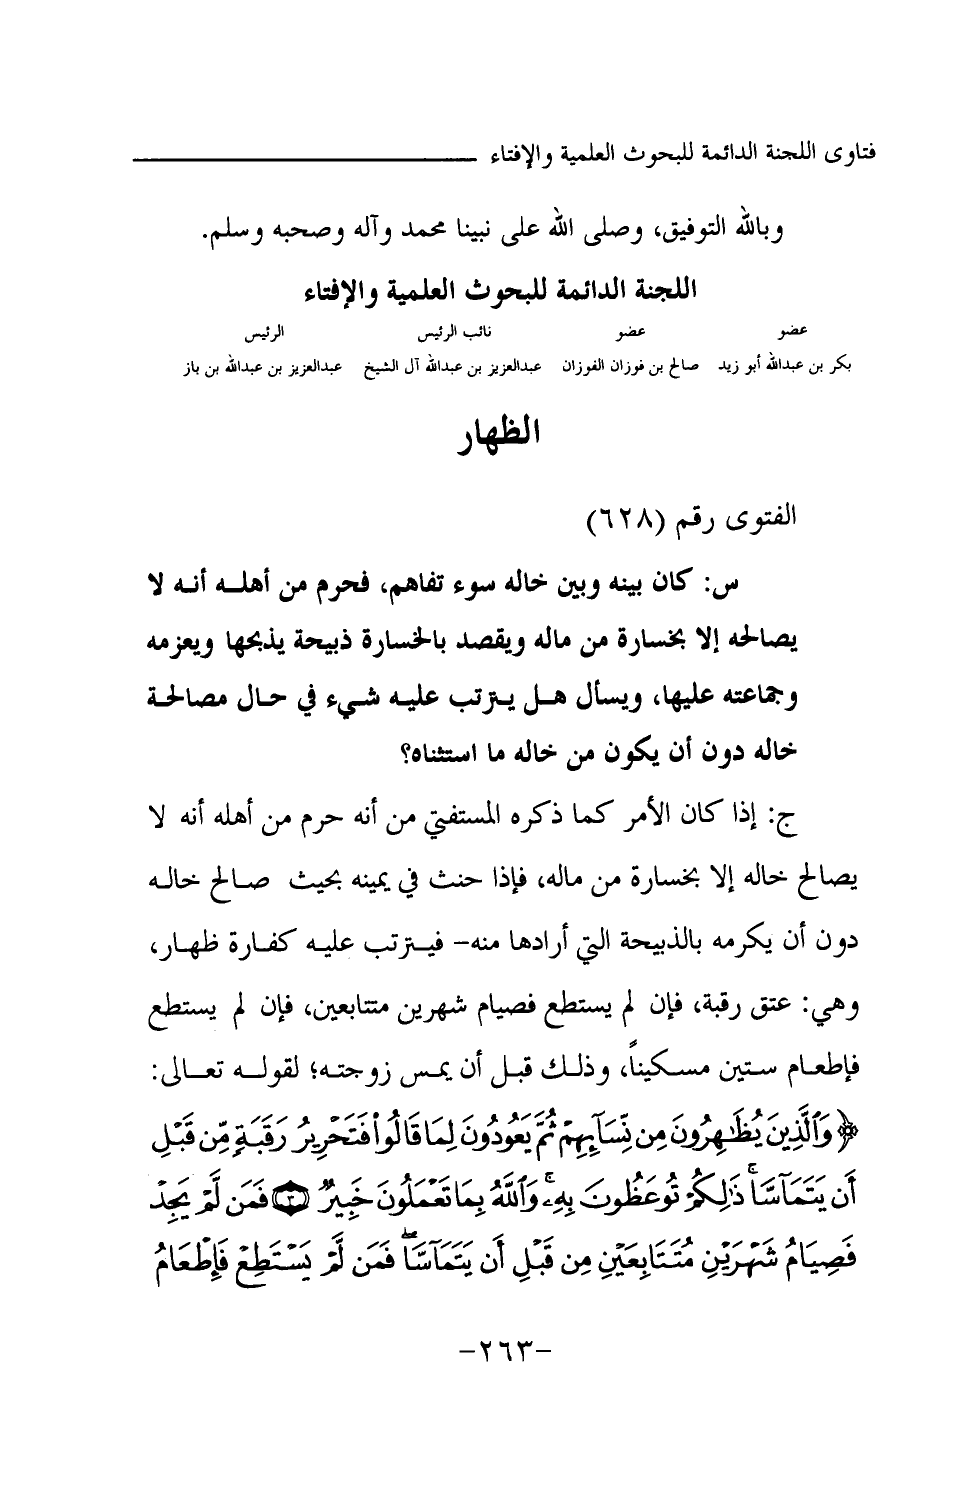 فتاوى اللجنة الدائمة للبحوث العلمية والإفتاء
وبالله التوفيق، وصلى الله على نبينا محمد وآله وصحبه وسلم.
اللجنة الدائمة للبحوث العلمية والإفتاء
عضو عضو نائب الرئيس الرئيس
بكر بن عبدالله أبو زيد صالح بن فوزان الفوزان عبدالعزيز بن عبدالله آل الشيخ عبدالعزيز بن عبدالله بن باز
الظهار
الفتوى رقم (٦٢٨)
س: كان بينه وبين خاله سوء تفاهم، فحرم من أهله أنه لا
يصالحه إلا بخسارة من ماله ويقصد بالخسارة ذبيحة يذبحها ويعزمه
وجماعته عليها، ويسأل هل يترتب عليه شيء في حال مصالحة
خاله دون أن يكون من خاله ما استثناه؟
ج: إذا كان الأمر كما ذكره المستفتي من أنه حرم من أهله أنه لا
يصالح خاله إلا بخسارة من ماله، فإذا حنث في يمينه بحيث صالح خاله
دون أن يكرمه بالذبيحة التي أرادها منه- فيترتب عليه كفارة ظهار،
وهي: عتق رقبة، فإن لم يستطع فصيام شهرين متتابعين، فإن لم يستطع
فإطعام ستين مسكيناً، وذلك قبل أن يمس زوجته؛ لقوله تعالى:
﴿وَٱلَّذِينَ يُظَـٰهِرُونَ مِن نِّسَآئِهِمْ ثُمَّ يَعُودُونَ لِمَا قَالُوا۟ فَتَحْرِيرُ رَقَبَةٍ مِّن قَبْلِ
أَن يَتَمَآسَّا ۚ ذَٰلِكُمْ تُوعَظُونَ بِهِۦ ۚ وَٱللَّهُ بِمَا تَعْمَلُونَ خَبِيرٌ ٣ فَمَن لَّمْ يَجِدْ
فَصِيَامُ شَهْرَيْنِ مُتَتَابِعَيْنِ مِن قَبْلِ أَن يَتَمَآسَّا ۖ فَمَن لَّمْ يَسْتَطِعْ فَإِطْعَامُ
-٢٦٣-